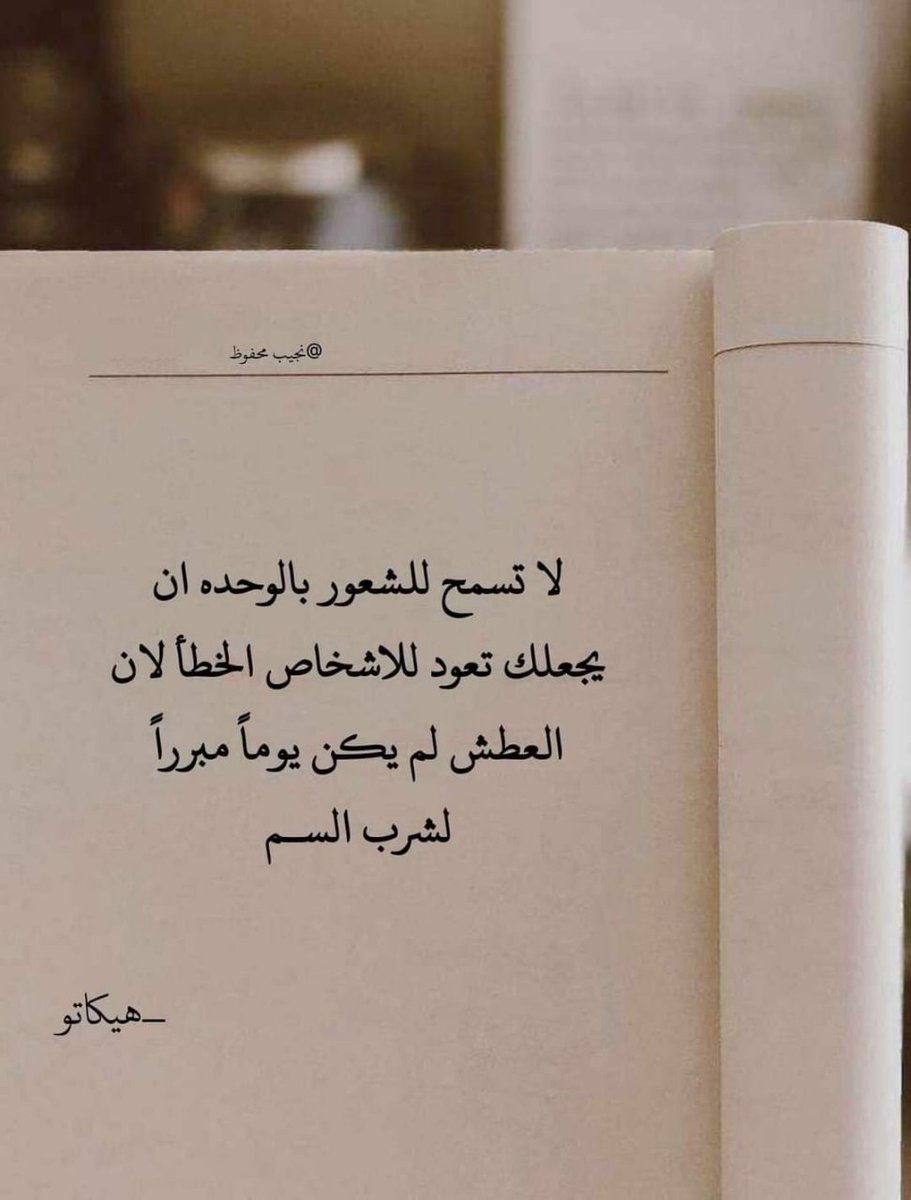 @نجيب محفوظ
لا تسمح للشعور بالوحده ان
يجعلك تعود للاشخاص الخطأ لان
العطش لم يكن يوماً مبرراً
لشرب الســم
_هيكاتو